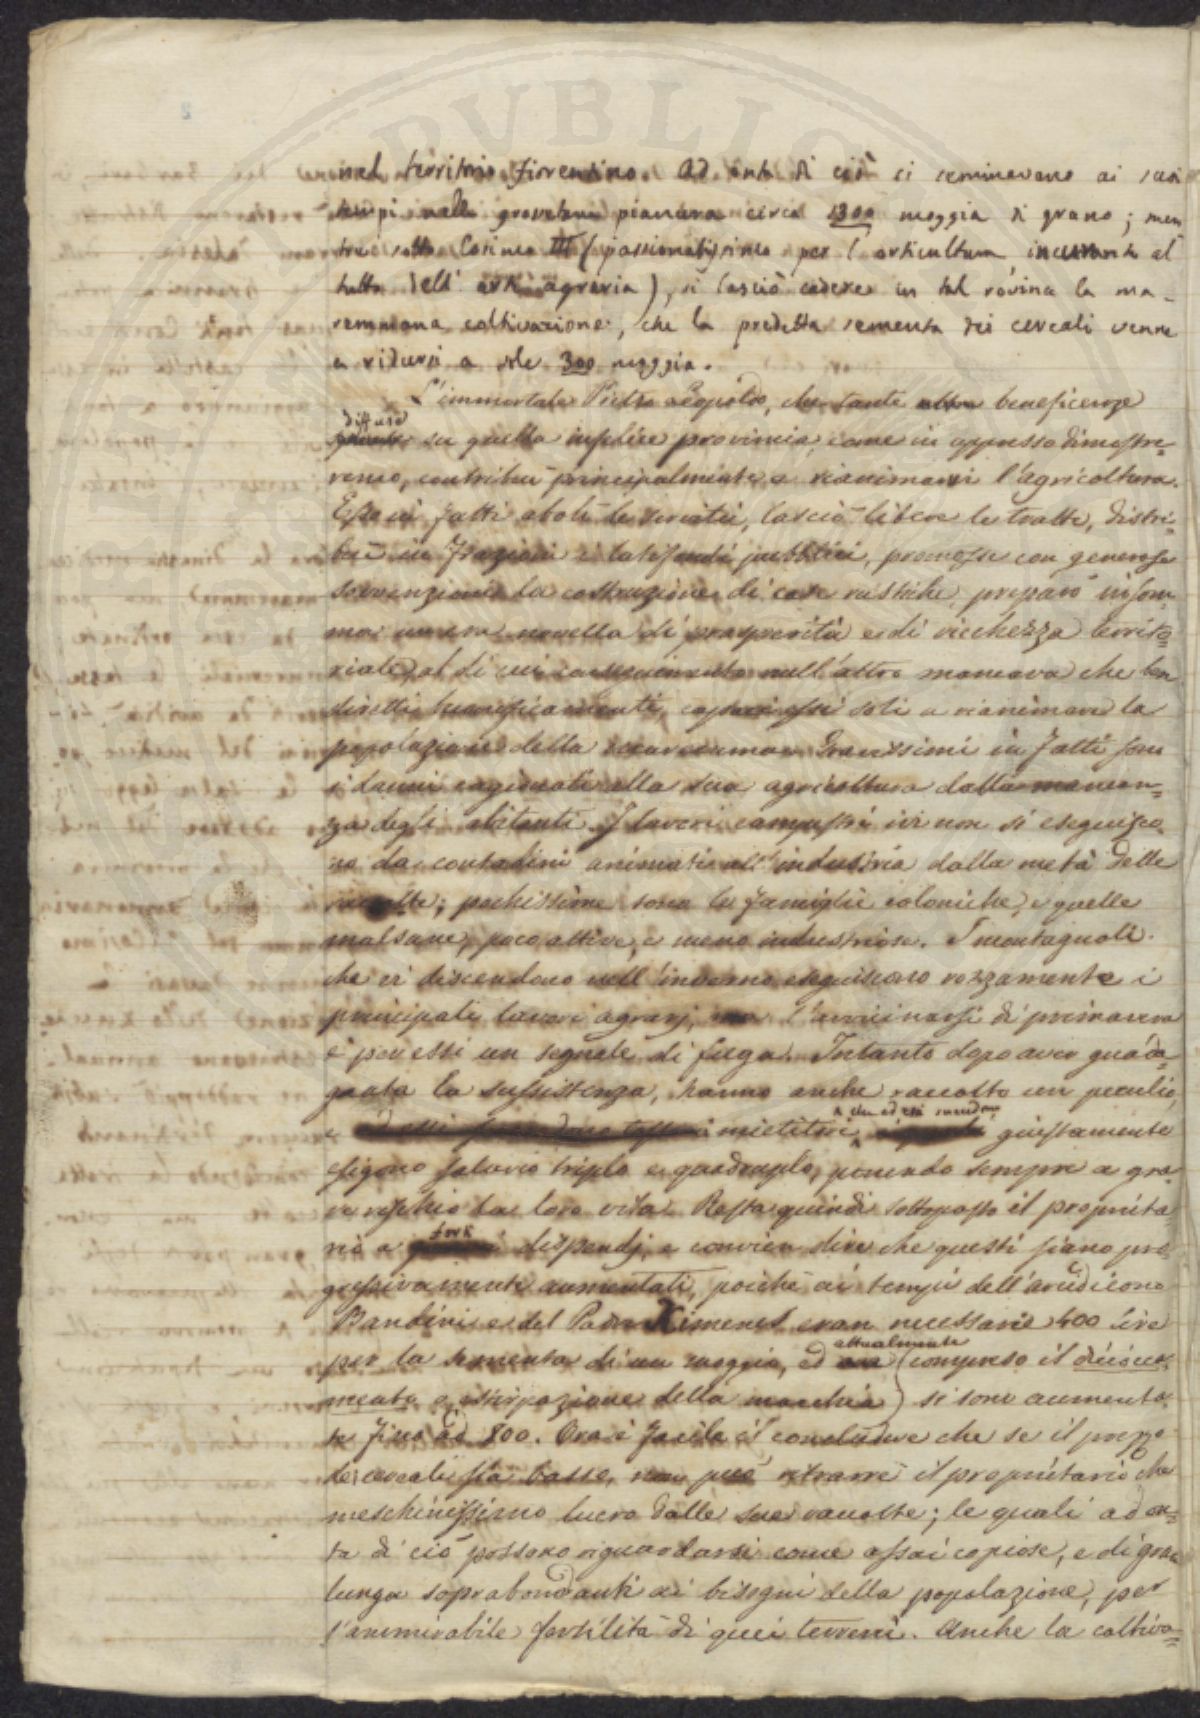 nel territorio fiorentino. Ad onta di ciò si seminavano ai suoi
tempi nella grossetana pianura circa 1300 moggia di grano; men
tre sotto Cosimo III (passionatissimo per l'orticultura, incurante al
tutto dell'arte agraria), si lasciò cadere in tal rovina la ma-
remmana coltivazione, che la predetta sementa dei cereali venne
a ridursi a sole 300 moggia.
L'immortale Pietro Leopoldo, che tante altre beneficenze
diffuse
su quella infelice provincia, come in appresso dimostre-
remo, contribuì principalmente a rianimarvi l'agricoltura.
Esso in fatti abolì le servitù, lasciò libere le tratte, distri-
buì in frazioni i latifondi pubblici, promosse con generose
sovvenzioni la costruzione di case rustiche, preparò insom-
ma un'era novella di prosperità e di ricchezza territo-
riale, al di cui conseguimento null'altro mancava che ben
diretti bonificamenti, essi soli a rianimare la
popolazione della maremma. Gravissimi in fatti sono
i danni cagionati alla sua agricoltura dalla mancan-
za degli abitanti. I lavori campestri ivi non si eseguisco
no da contadini animati all'industria dalla metà delle
raccolte; pochissime sono le famiglie coloniche, e quelle
malsane, poco attive, e meno industriose. I montagnoli
che vi discendono nell'inverno eseguiscono rozzamente i
principali lavori agrarj, ma l'avvicinarsi di primavera
è per essi un segnale di fuga. Intanto dopo aver guada-
gnata la sussistenza, hanno anche raccolto un peculio,
che ad essi succedono
e i mietitori giustamente
esigono salario triplo e quadruplo, ponendo sempre a gra-
ve rischio la loro vita. Resta quindi sottoposto il proprieta-
forti
rio a dispendj, e convien dire che questi siano pro-
gressivamente aumentati, poiché ai tempi dell'arcidiacono
Bandini e del Padre Ximenes eran necessarie 400 lire
attualmente
per la sementa di un moggio, ed ora (compreso il diciocca-
mento e estirpazione della macchia) si sono aumenta-
te fino ad 800. Ora è facile il concludere che se il prezzo
dei cereali sia basso, non può ritrarre il proprietario che
meschinissimo lucro dalle sue raccolte; le quali ad on-
ta di ciò possono riguardarsi come assai copiose, e di gran
lunga soprabondanti ai bisogni della popolazione, per
l'ammirabile fertilità di quei terreni. Anche la coltiva-